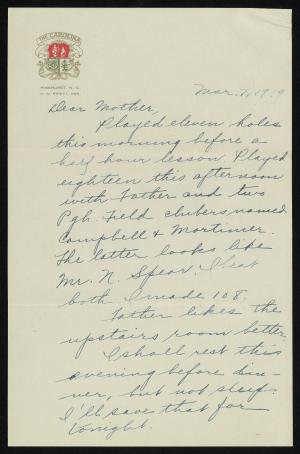 THE CAROLINA
PINEHURST, N. C.
Mar. 7, 1919
Dear Mother,
Played eleven holes
this morning before a
half hour lesson. Played
eighteen this afternoon
with Father and two
Pgh. Field clubers named
Campbell & Mortimer.
The latter looks like
Mr. N. Spear. I beat
both. I made 108.
Father likes the
upstairs room better.
I shall rest this
evening before din-
ner, but not sleep.
I'll save that for
tonight.